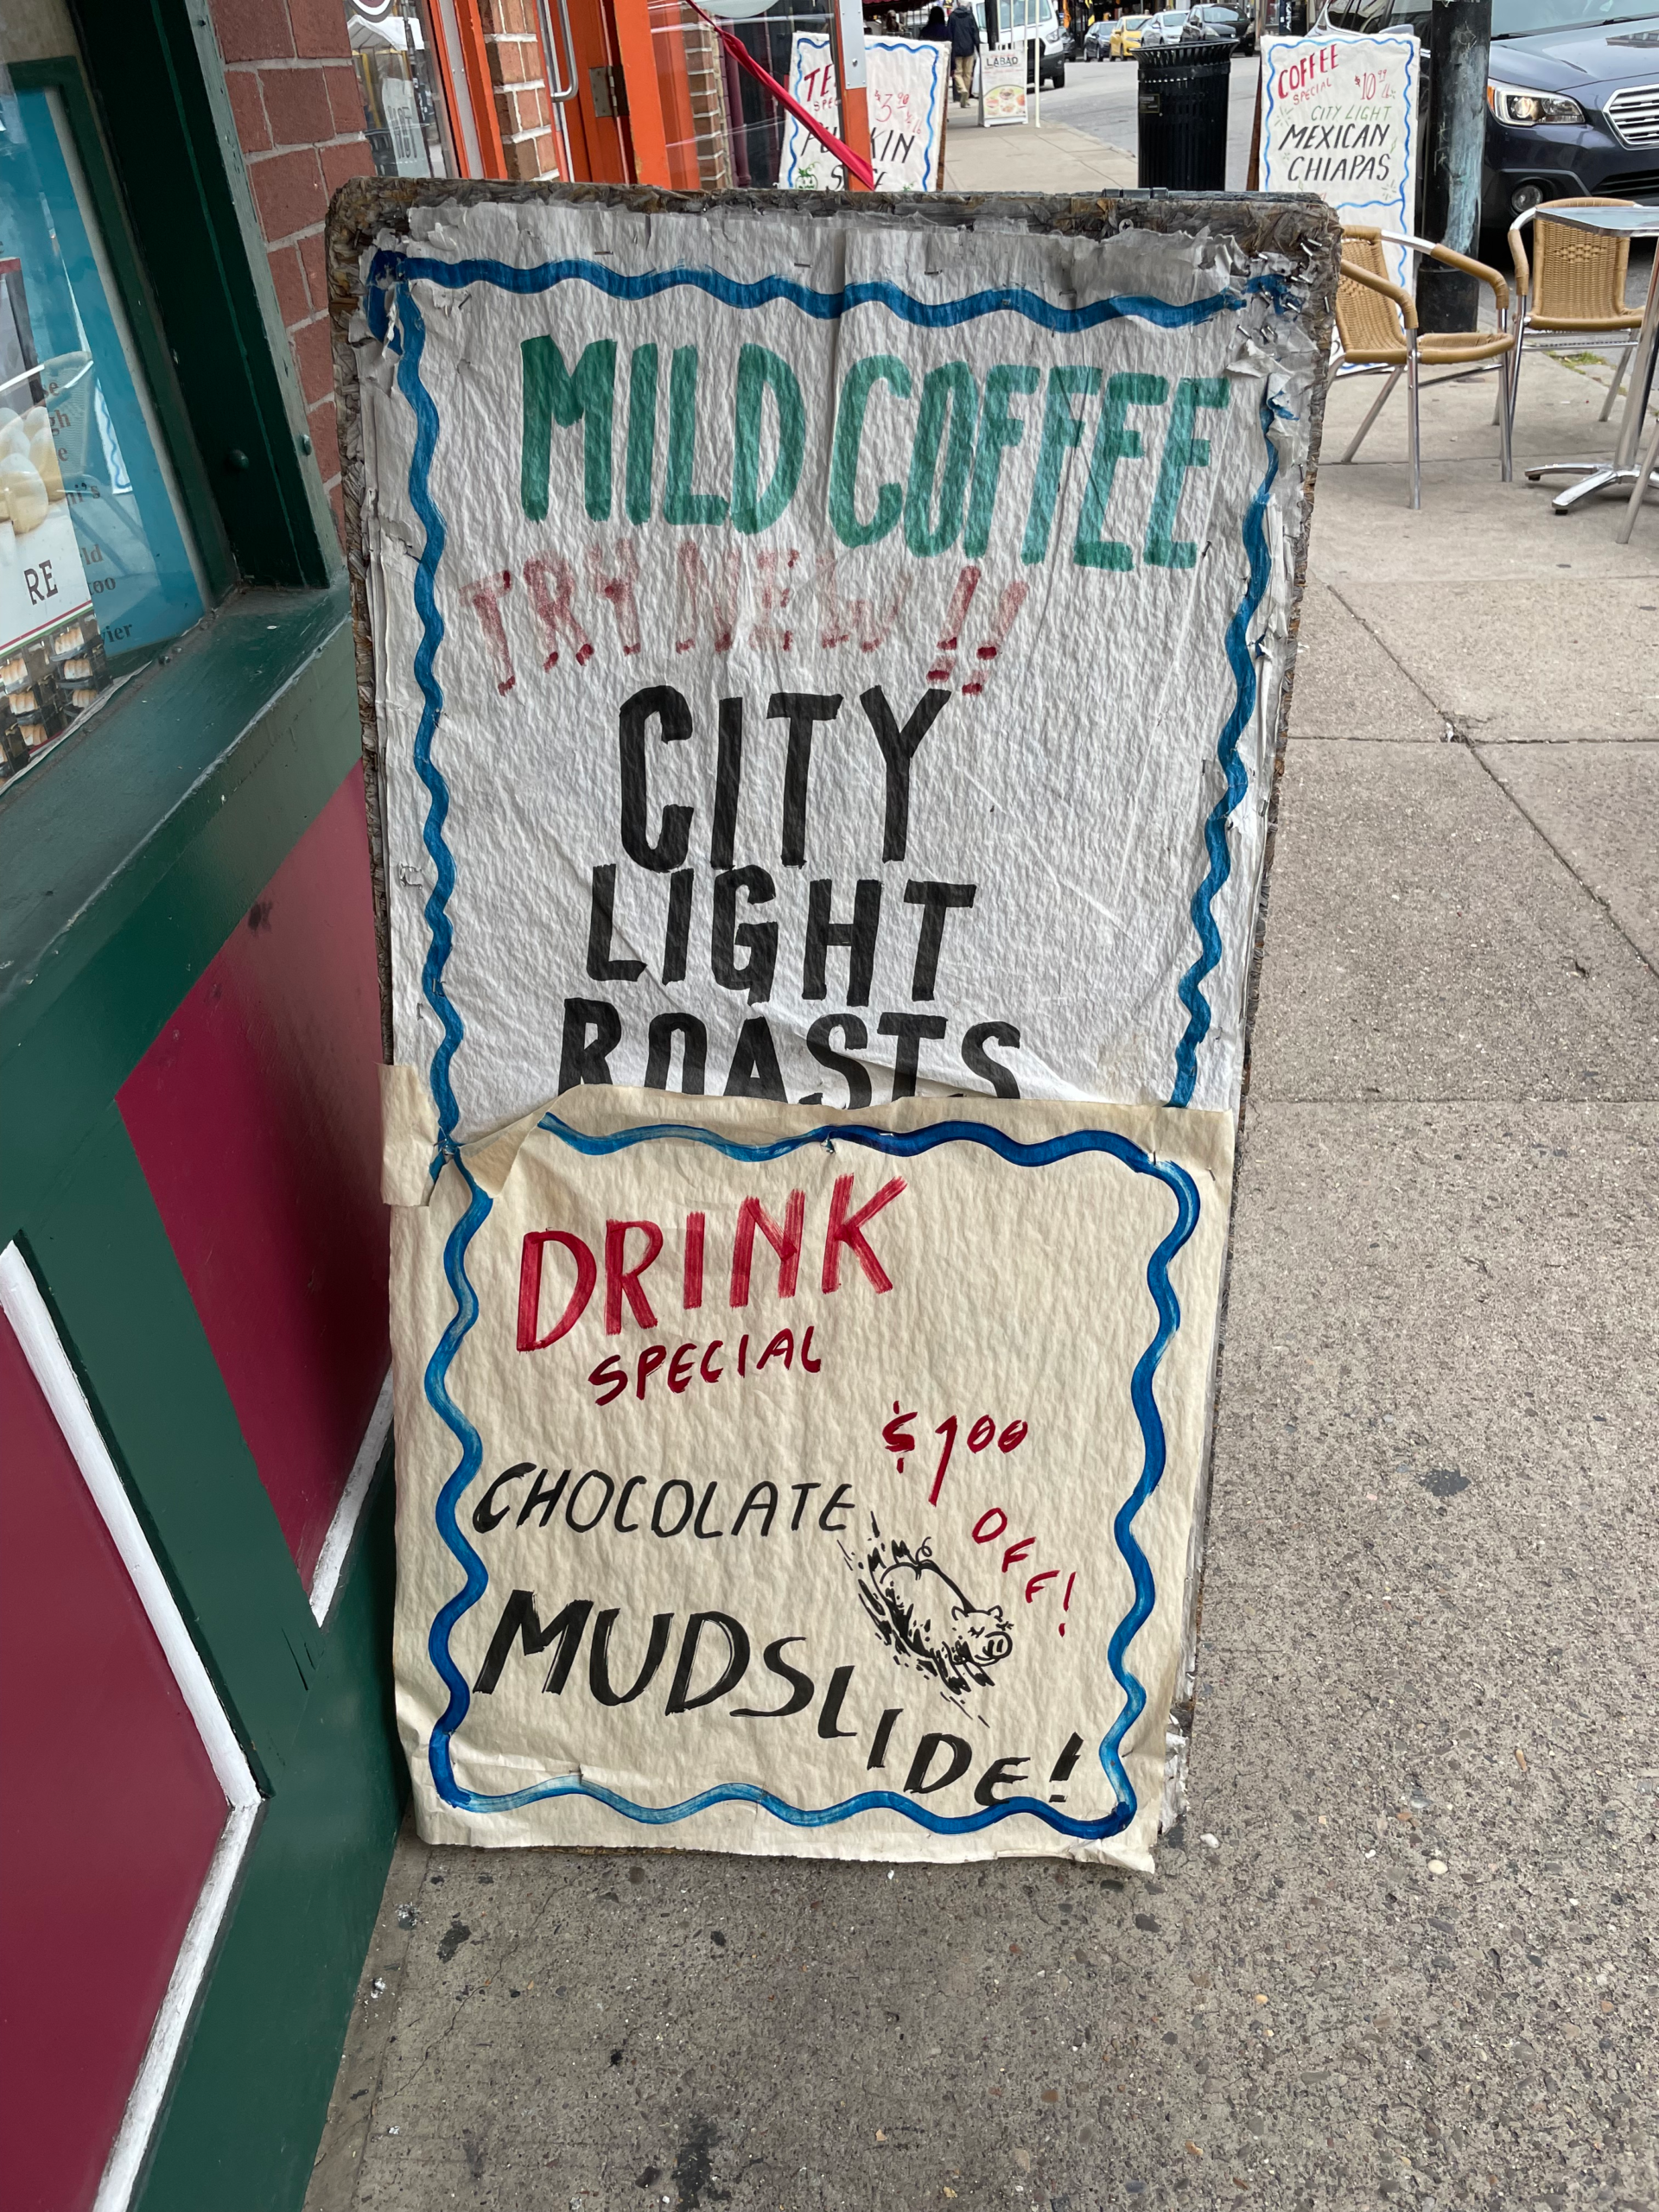 MILD COFFEE
TRY NEW!!
CITY
LIGHT
ROASTS
DRINK
SPECIAL
$1.00
OFF!
CHOCOLATE
MUDSLIDE!
COFFEE
SPECIAL
$10.99
CITY LIGHT
MEXICAN
CHIAPAS
LABAO
RE